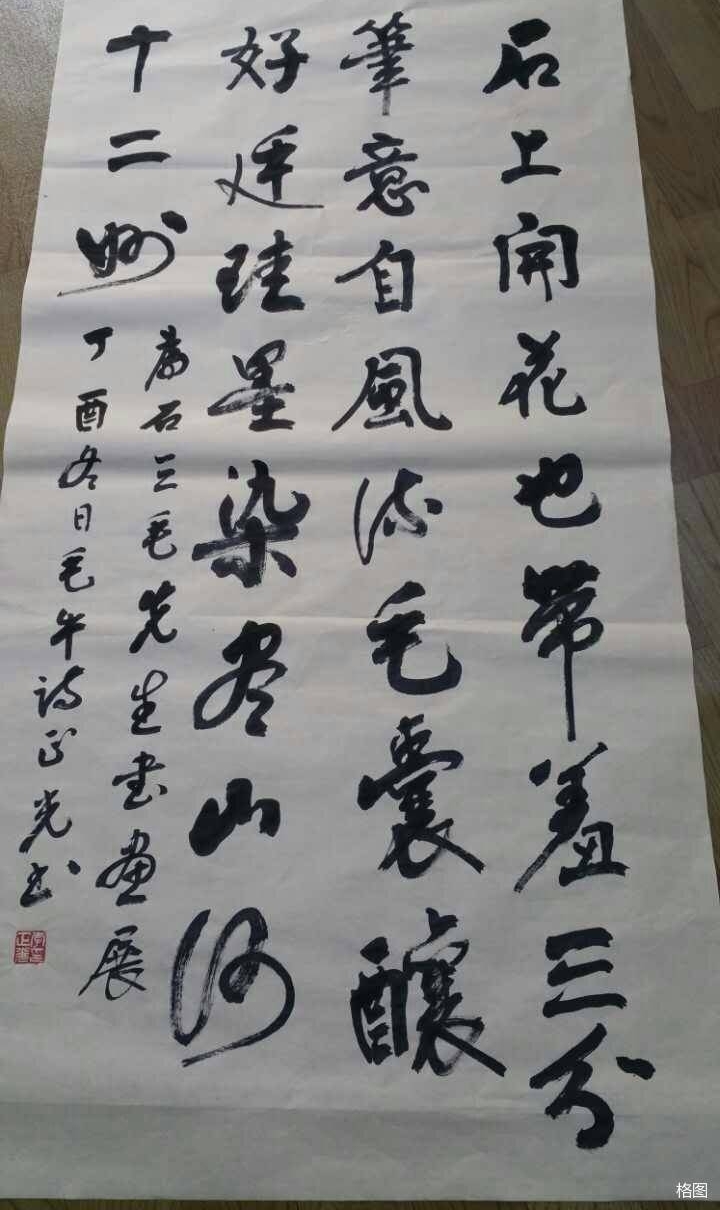 石上開花也帶羞三分
筆意自風流毛囊釀
好廷珪墨染尽山河
十二州
為石三毛先生書畫展
丁酉冬日毛牛诗正光书
格图